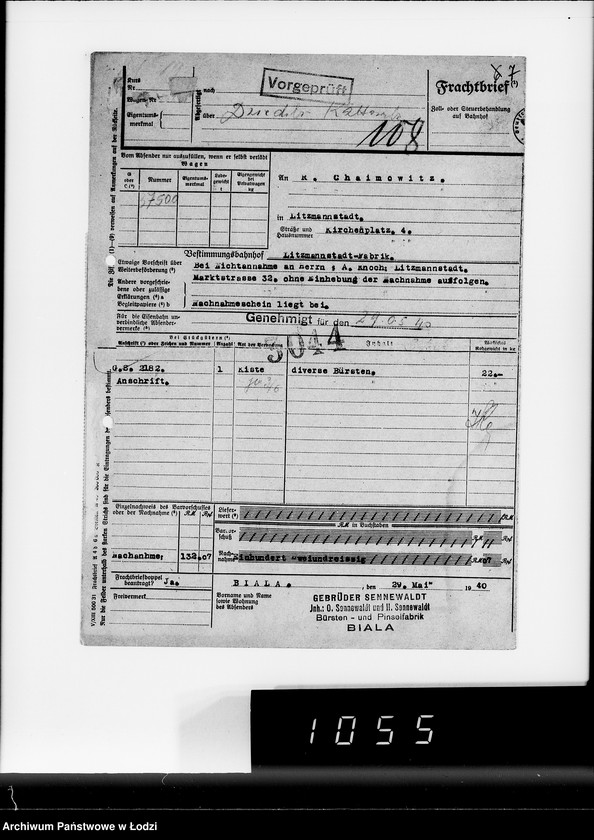 Kurs
Nr.
Wagen-Nr.
Eigentums-
merkmal
Abgefertigt
nach
über
Vorgeprüft
108
7
Frachtbrief (¹)
Zoll- oder Steuerbehandlung
auf Bahnhof
Vom Absender nur auszufüllen, wenn er selbst verlädt
Wagen
Nummer
Eigentums-
merkmal
Lade-
gewicht
Eigengewicht
37500
An R. Chaimowitz.
in Litzmannstadt.
Straße und
Hausnummer Kirchenplatz. 4.
Bestimmungsbahnhof Litzmannstadt-Fabrik.
Etwaige Vorschrift über
Weiterbeförderung (³)
Bei Nichtannahme an Herrn : A. Knoch; Litzmannstadt.
Andere vorgeschrie-
bene oder zulässige
Erklärungen (⁴) a
Begleitpapiere (⁴) b
Marktstrasse 32. ohne Einhebung der Nachnahme ausfolgen.
Nachnahmeschein liegt bei.
Für die Eisenbahn un-
verbindliche Absender-
vermerke (⁵)
Genehmigt für den 29.05.40
3044
Bei Stückgütern
Anschrift (⁷) oder Zeichen und Nummer
Anzahl
Art der Verpackung
Inhalt
G.S. 2182.
1
Kiste
diverse Bürsten.
22.-
Anschrift.
Einzelnachweis des Barvorschusses
oder der Nachnahme (⁹)
RM
Rpf
Liefer-
wert (⁹)
RM
RM in Buchstaben
Barvor-
schuß
Rpf
Nachnahme;
132.07
Nach-
nahme
Einhundert zweiunddreissig
RM 07 Rpf
Frachtbriefdoppel
beantragt? Ja.
BIALA. , den 29. Mai 1940
Freivermerk
Vorname und Name
sowie Wohnung
des Absenders
GEBRÜDER SENNEWALDT
Inh: O. Sennewaldt und H. Sennewaldt
Bürsten - und Pinselfabrik
BIALA
1055
Archiwum Państwowe w Łodzi